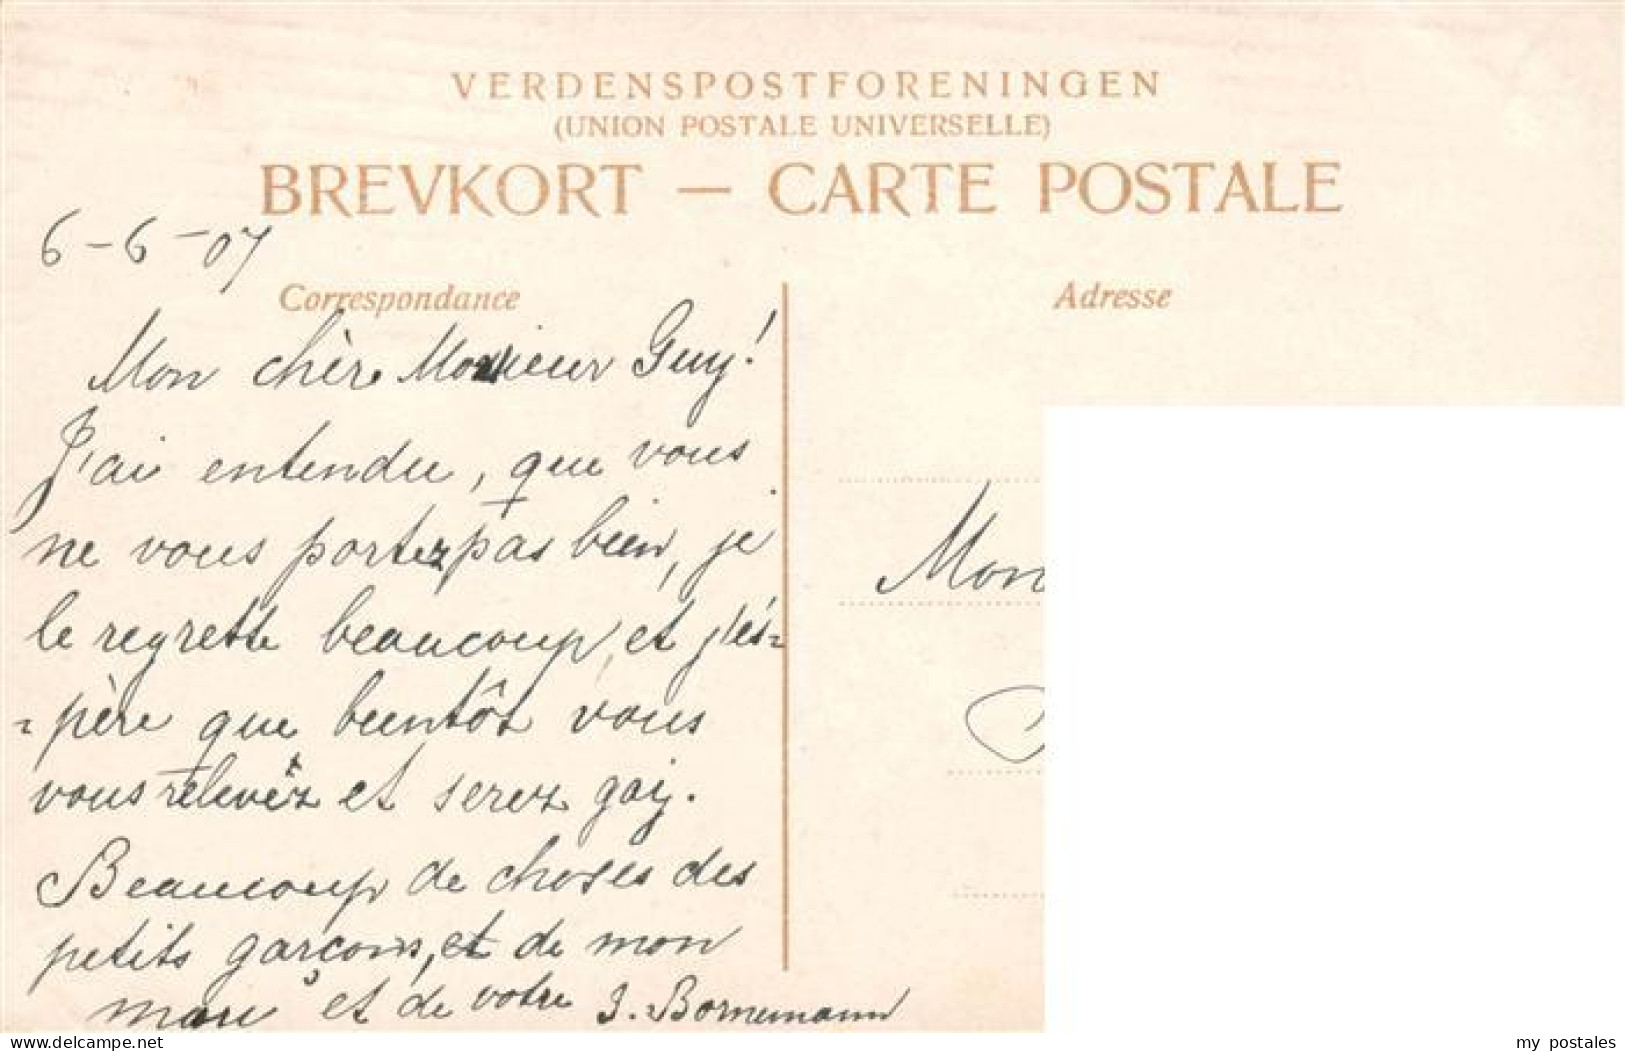 VERDENSPOSTFORENINGEN
(UNION POSTALE UNIVERSELLE)
BREVKORT — CARTE POSTALE
6-6-07
Correspondance
Mon chère Monsieur Guy!
J'ai entendu, que vous
ne vous portez pas bien, je
le regrette beaucoup, et j'és=
=père que bientôt vous
vous relevéz et serez gaij.
Beaucoup de choses des
petits garçons, et de mon
mari et de votre J. Bornemann
Adresse
Mon
delcampe.net
my_postales